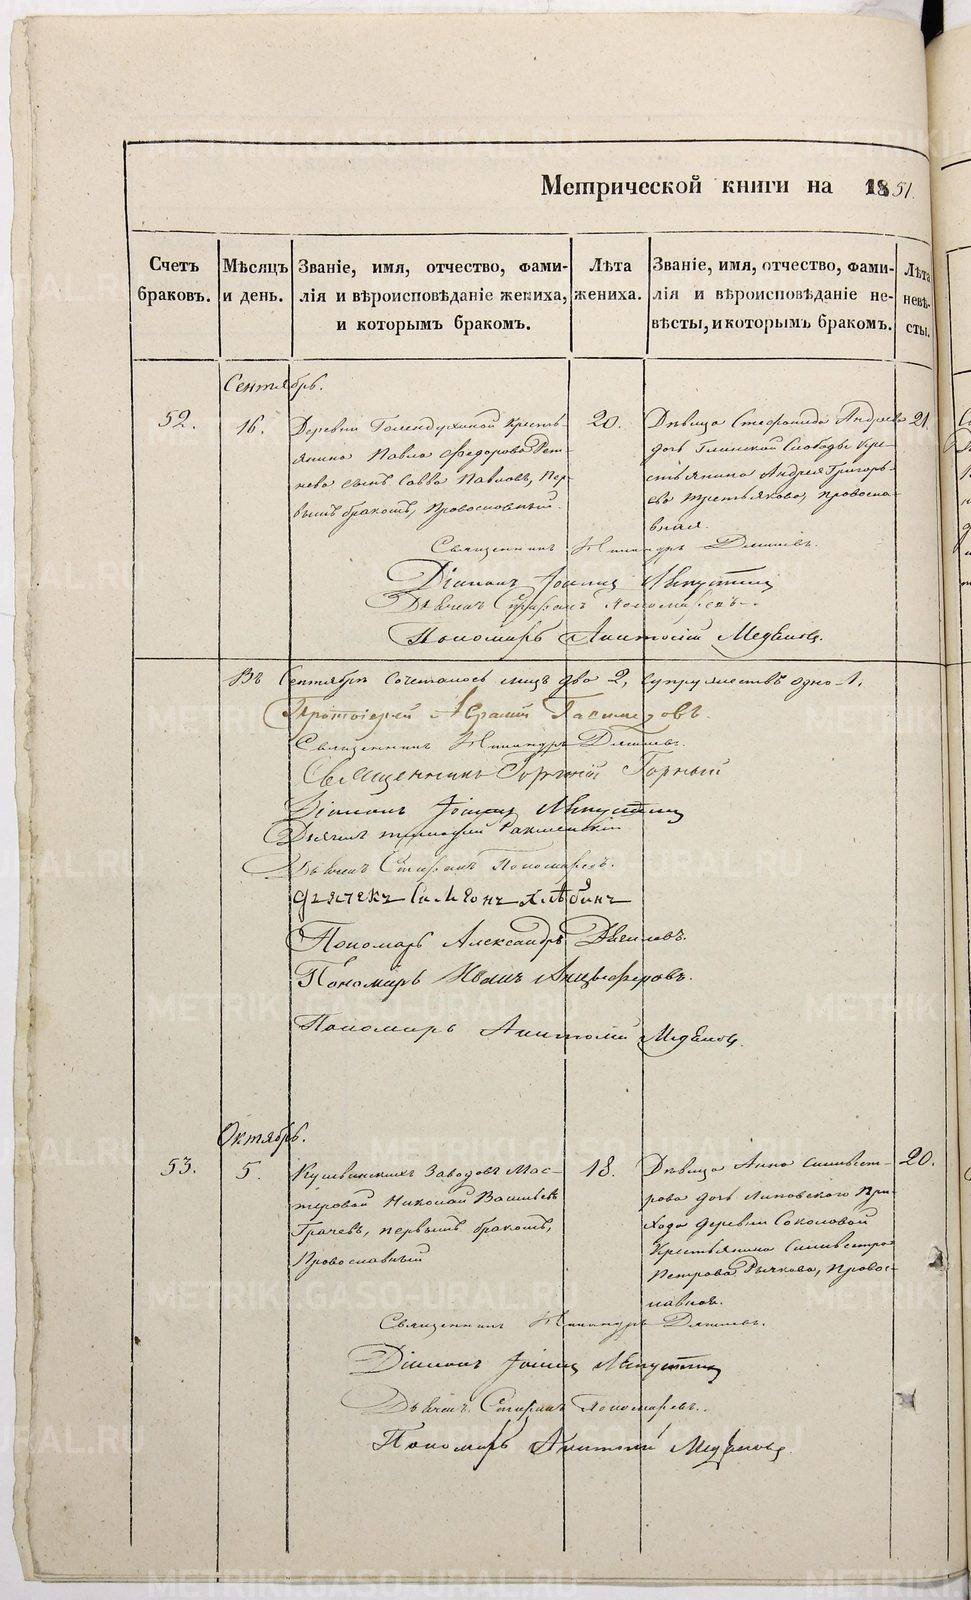 Метрической книги на 1851.
Счетъ браковъ.
Мѣсяцъ и день.
Званіе, имя, отчество, фами-
лія и вѣроисповѣданіе жениха,
и которымъ бракомъ.
Лѣта жениха.
Званіе, имя, отчество, фами-
лія и вѣроисповѣданіе не-
вѣсты, и которымъ бракомъ.
Лѣта невѣ-
сты.
Сентябрь.
52.
16.
Деревни Голендухиной кресть-
янина Павла Федорова
сынъ Савва Павловъ, пер-
вымъ бракомъ, Православный.
20.
Дѣвица Стефанида Андреева
дочь Глинской Слободы кре-
стьянина Андрея Григорь-
ева Третьякова, православ-
ная.
21.
Священникъ Никандръ
Діаконъ Іоаннъ
Дьячекъ Стефанъ Пономаревъ.
Пономарь Анатолій
Въ Сентябрѣ сочеталось лицъ два 2, супружествъ одно 1.
Протоіерей
Священникъ Никандръ
Священникъ Горный
Діаконъ Іоаннъ
Дьячекъ Тимофей
Дьячекъ Стефанъ Пономаревъ.
Дьячекъ Симеонъ Хлѣбинъ
Пономарь Александръ
Пономарь Иванъ Анцыферовъ.
Пономарь Анатолій
Октябрь.
53.
5.
Кушвинскихъ Заводовъ Мас-
теровой Николай Васильевъ
Грачевъ, первымъ бракомъ,
Православный
18.
Дѣвица Анна Сильвест-
рова дочь Липовскаго При-
хода деревни Соколовой
Крестьянина Сильвестра
Петрова Рычкова, Правос-
лавная.
20.
Священникъ Никандръ
Діаконъ Іоаннъ
Дьячекъ Стефанъ Пономаревъ.
Пономарь Анатолій
METRIKI.GASO-URAL.RU